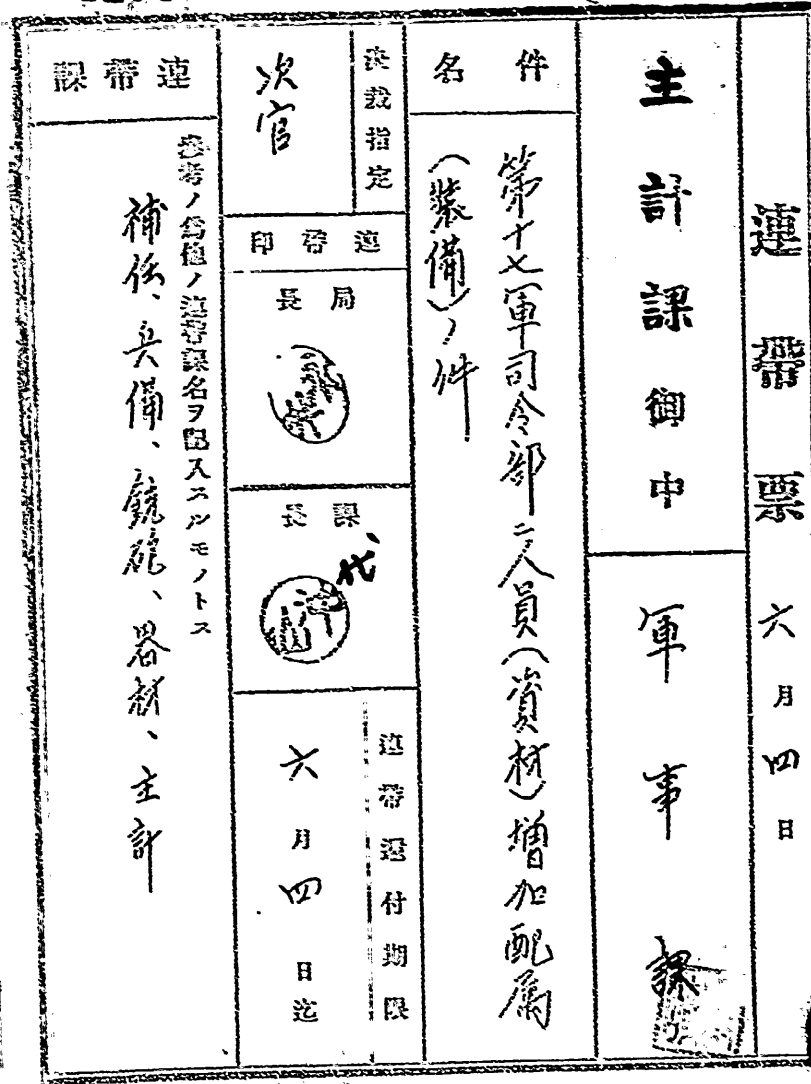 連帶票
六月四日
主計課御中
軍事課
件名
第十七軍司令部ニ人員(資材)増加配属
(装備)ノ件
決裁指定
次官
連帶印
局長
課長
代
連帶還付期限
六月四日迄
連帶課
參考ノ爲他ノ連帶課名ヲ記入スルモノトス
補任、兵備、銃砲、器材、主計